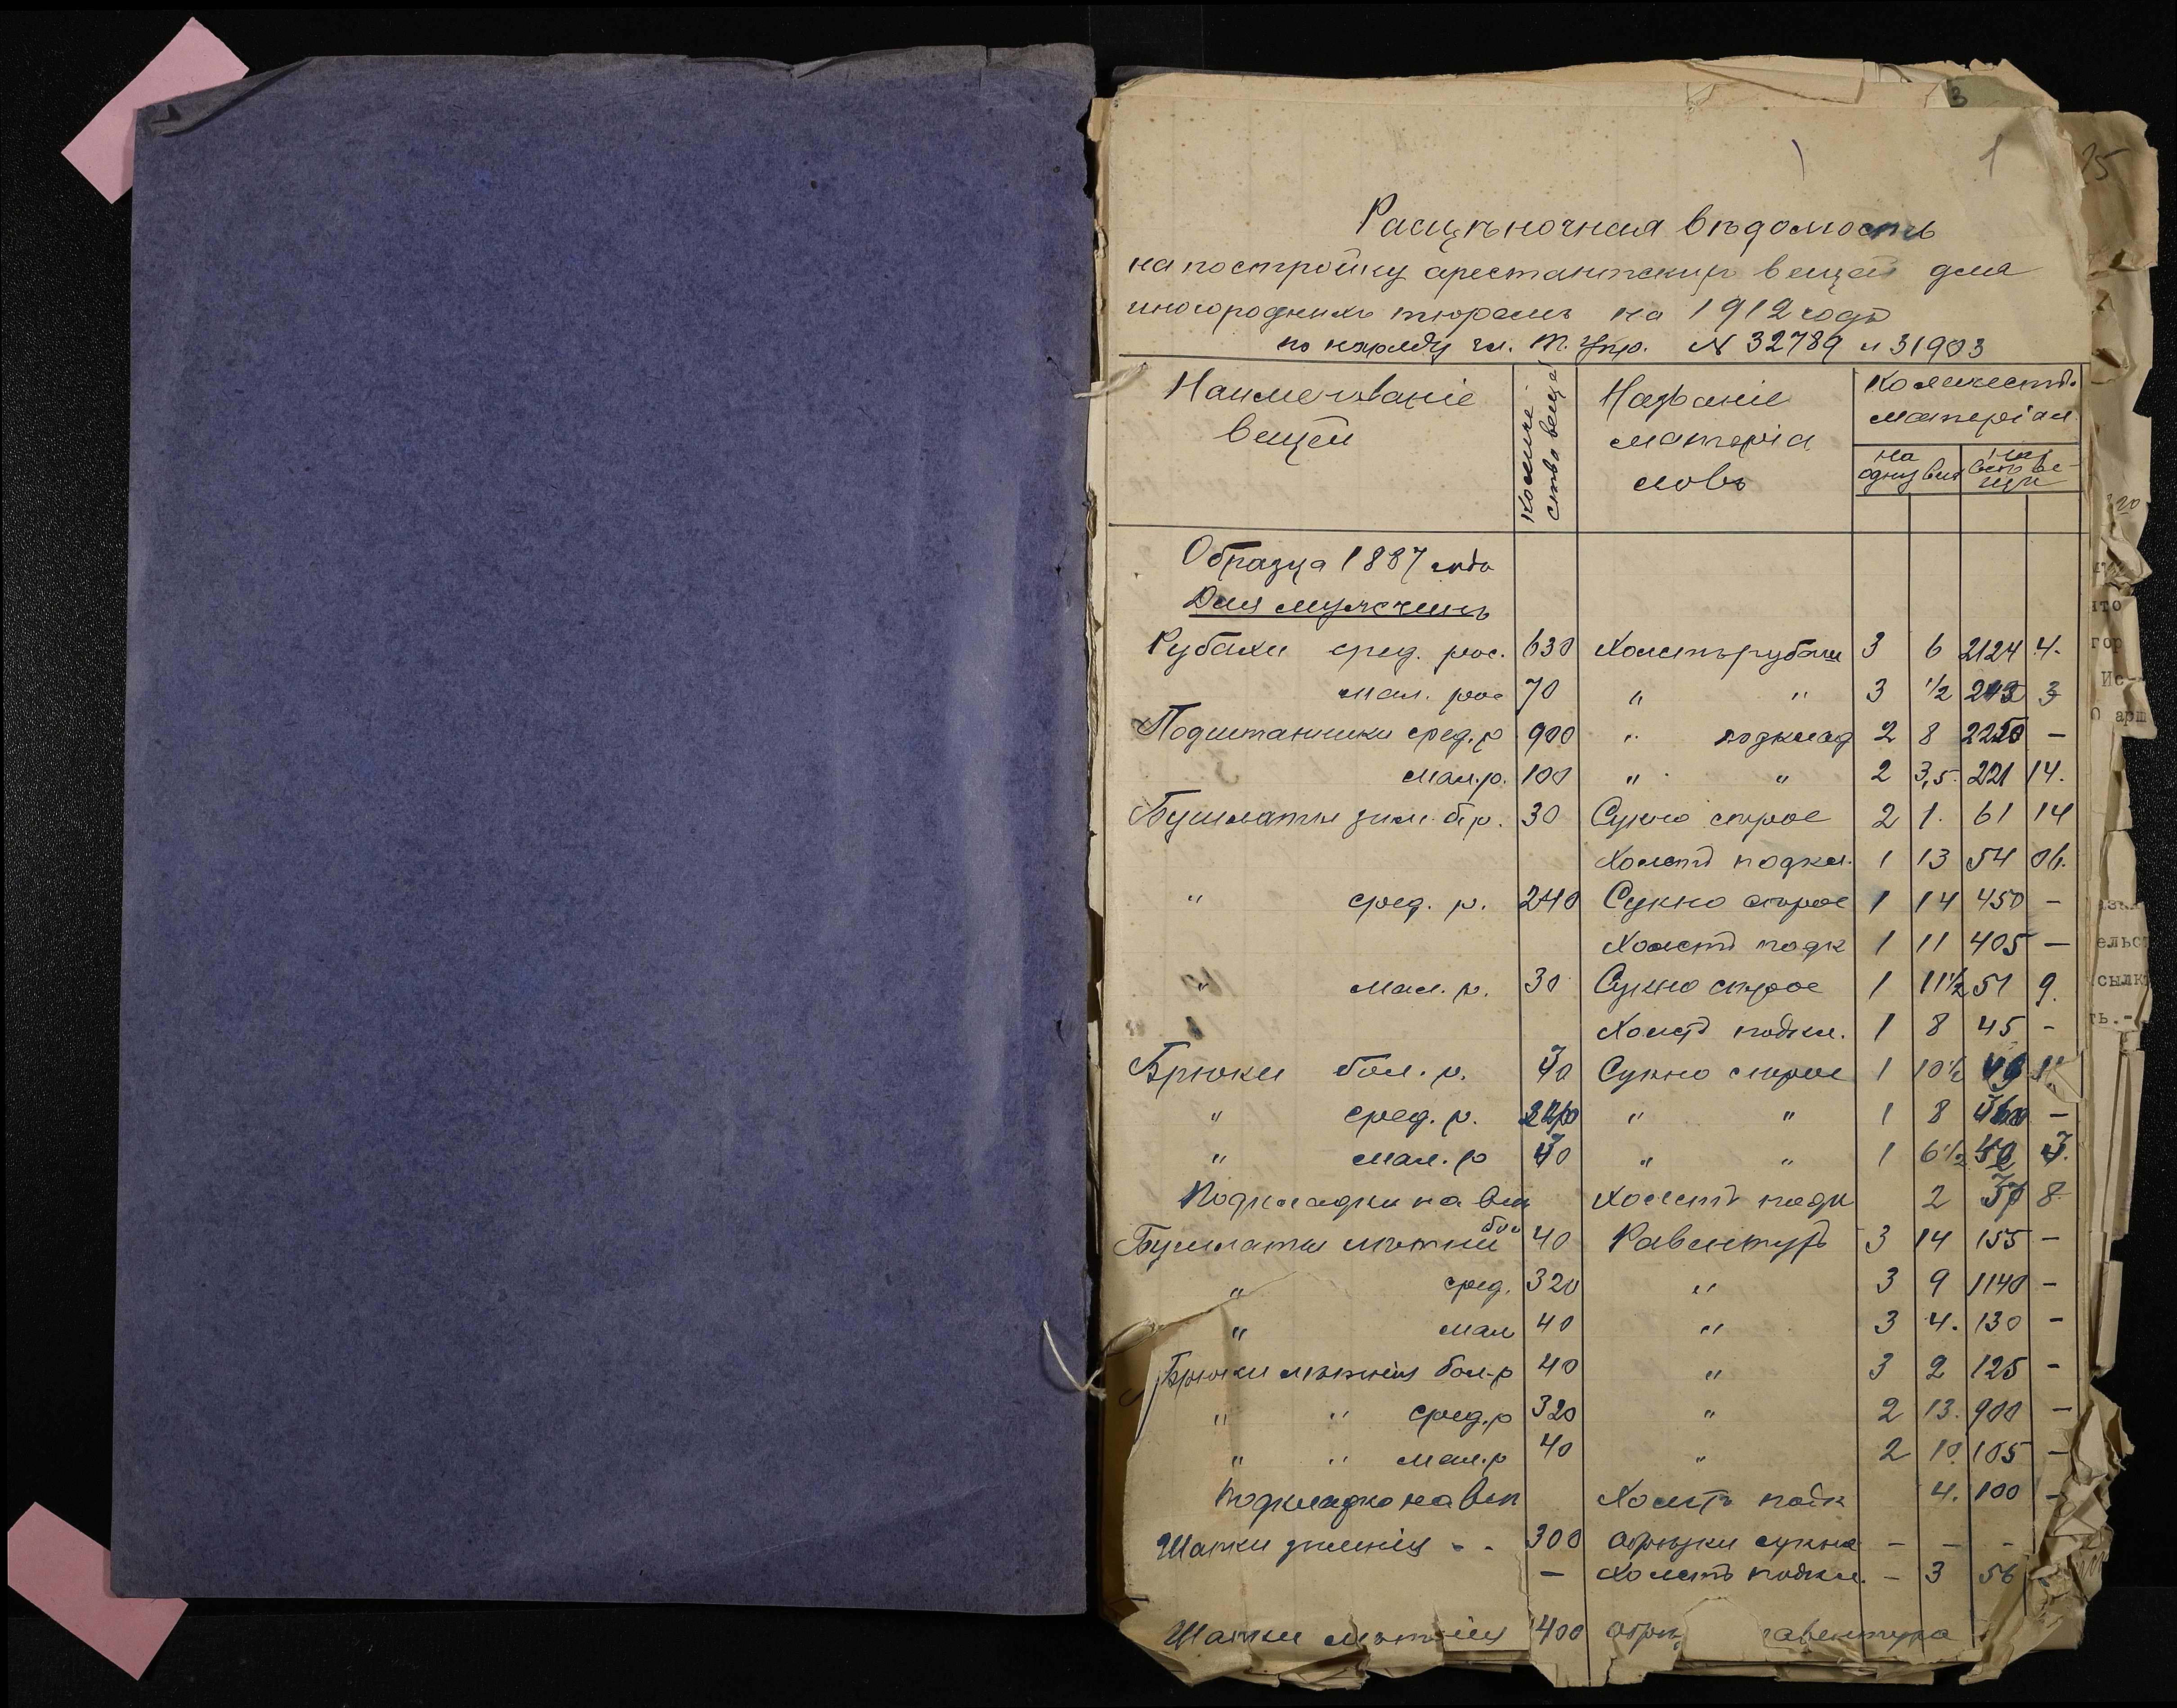 3
1
25
Расцѣночная вѣдомость
на постройку арестантскихъ вещей для
иногороднихъ тюремъ на 1912 годъ
по наряду гл. т. упр. № 32789 и 31903
Наименованіе вещей
Количество вещей
Названіе матеріаловъ
Количеств. матеріал.
На одну вещ
На всѣ вещи
Образца 1887 года
Для мужчинъ
Рубахи сред. рос. 630 Холстъ рубаш 3 6 2124 4.
мал. рос 70 " " 3 1/2 3
Подштанники сред. р 900 " подклад 2 8 2250 –
мал. р. 100 " " 2 3,5. 221 14.
Бушлаты зим. б. р. 30 Сукно сѣрое 2 1. 61 14
Холстъ подкл. 1 13 54 06.
" сред. р. 240 Сукно сѣрое 1 14 450 –
Холстъ подк 1 11 405 –
" мал. р. 30 Сукно сѣрое 1 11 1/2 51 9.
Холстъ подкл. 1 8 45 –
Брюки бол. р. Сукно сѣрое 1 10 1/2
" сред. р. " " 1 8 –
" мал. р " " 1 6 1/2
Подкладки на вс Холстъ подк 2 8
Бушлаты лѣтніи бол 40 Равентухъ 3 14 155 –
" сред. 320 " 3 9 1140 –
" мал 40 " 3 4. 130 –
Брюки лѣтнія бол. р 40 " 3 2 125 –
" " сред. р 320 " 2 13. 900 –
" " мал. р 40 " 2 10. 105 –
Подкладка на вс Холстъ подк 4. 100 –
Шапки зимнія - - 300 обрѣзки сукна – – -
– Холстъ подкл. – 3 56
Шапки лѣтнія 400 обрѣз авентуха
что
гор
Ис-
0 арш
ельс
сылк
ть.-